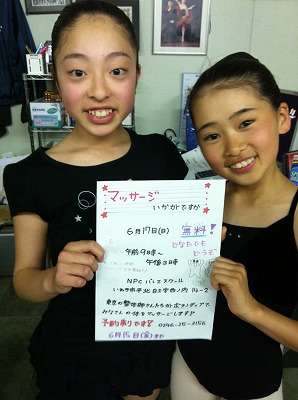 マッサージ
いかがですか
6月17日(日)
無料!
午前9時〜
午後3時
どなたでも
どうぞ
NPCバレエスクール
14-2
東京の整体師さんたちがボランティアで
みなさんの体をマッサージします!
予約制です! 0246-25-3156
6月15日(金)まで